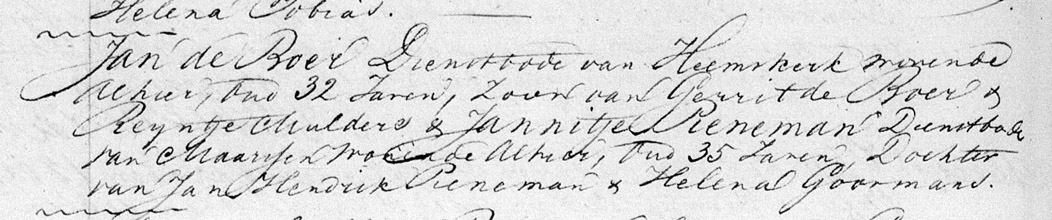 Helena Tobias.
Jan de Boer Dienstbode van Heemskerk wonende
Alhier, Oud 32 Jaren, Zoon van Gerrit de Boer &
Reyntje Mulders & Jannitje Pieneman Dienstbode
van Maarssen wonende Alhier, Oud 35 Jaren, Dochter
van Jan Hendrik Pieneman & Helena Goormans.